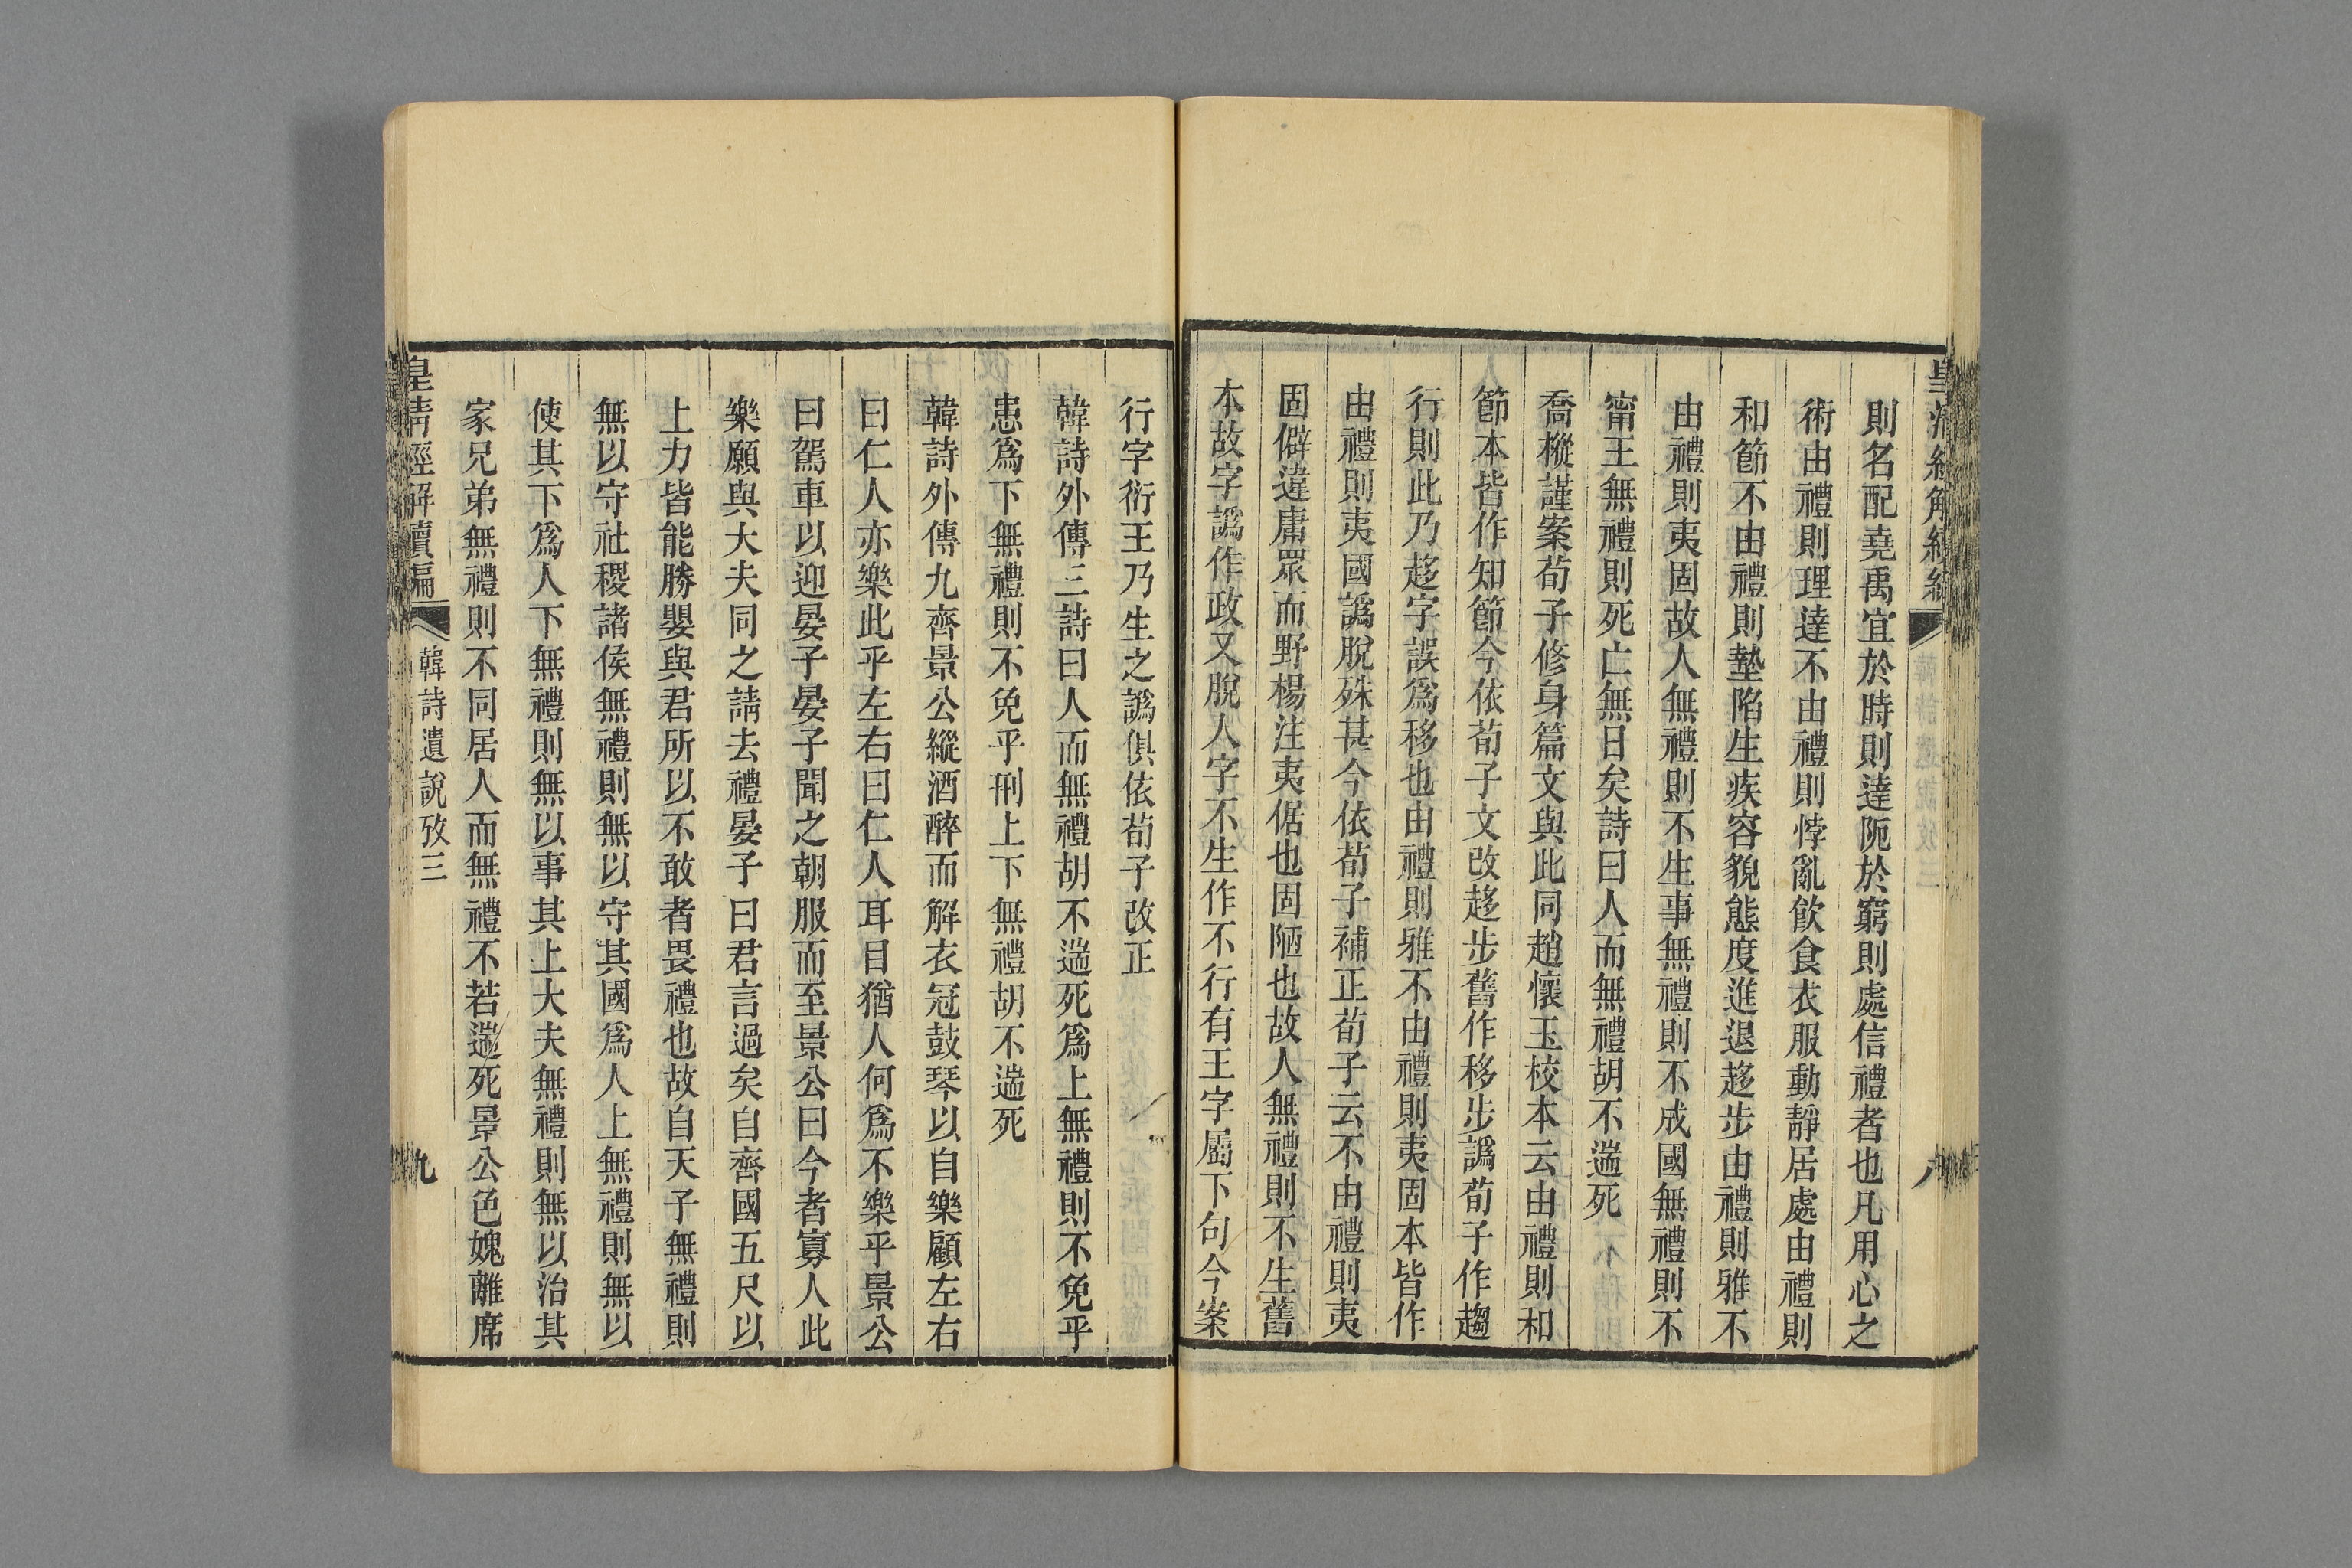 則名配堯禹宜於時則達阨於窮則處信禮者也凡用心之
術由禮則理達不由禮則悖亂飲食衣服動靜居處由禮則
和節不由禮則墊陷生疾容貌態度進退趍步由禮則雅不
由禮則夷固故人無禮則不生事無禮則不成國無禮則不
甯王無禮則死亡無日矣詩曰人而無禮胡不遄死
喬樅謹案荀子修身篇文與此同趙懷玉校本云由禮則和
節本皆作知節今依荀子文改趍步舊作移步譌荀子作趨
行則此乃趍字誤爲移也由禮則雅不由禮則夷固本皆作
由禮則夷國譌脫殊甚今依荀子補正荀子云不由禮則夷
固僻違庸眾而野楊注夷倨也固陋也故人無禮則不生舊
本故字譌作政又脫人字不生作不行有王字屬下句今案
行字衍王乃生之譌俱依荀子改正
韓詩外傳三詩曰人而無禮胡不遄死爲上無禮則不免乎
患爲下無禮則不免乎刑上下無禮胡不遄死
韓詩外傳九齊景公縱酒醉而解衣冠鼓琴以自樂顧左右
曰仁人亦樂此乎左右曰仁人耳目猶人何爲不樂乎景公
曰駕車以迎晏子晏子聞之朝服而至景公曰今者寡人此
樂願與大夫同之請去禮晏子曰君言過矣自齊國五尺以
上力皆能勝嬰與君所以不敢者畏禮也故自天子無禮則
無以守社稷諸侯無禮則無以守其國爲人上無禮則無以
使其下爲人下無禮則無以事其上大夫無禮則無以治其
家兄弟無禮則不同居人而無禮不若遄死景公色媿離席
皇清經解續編
韓詩遺說攷三
九